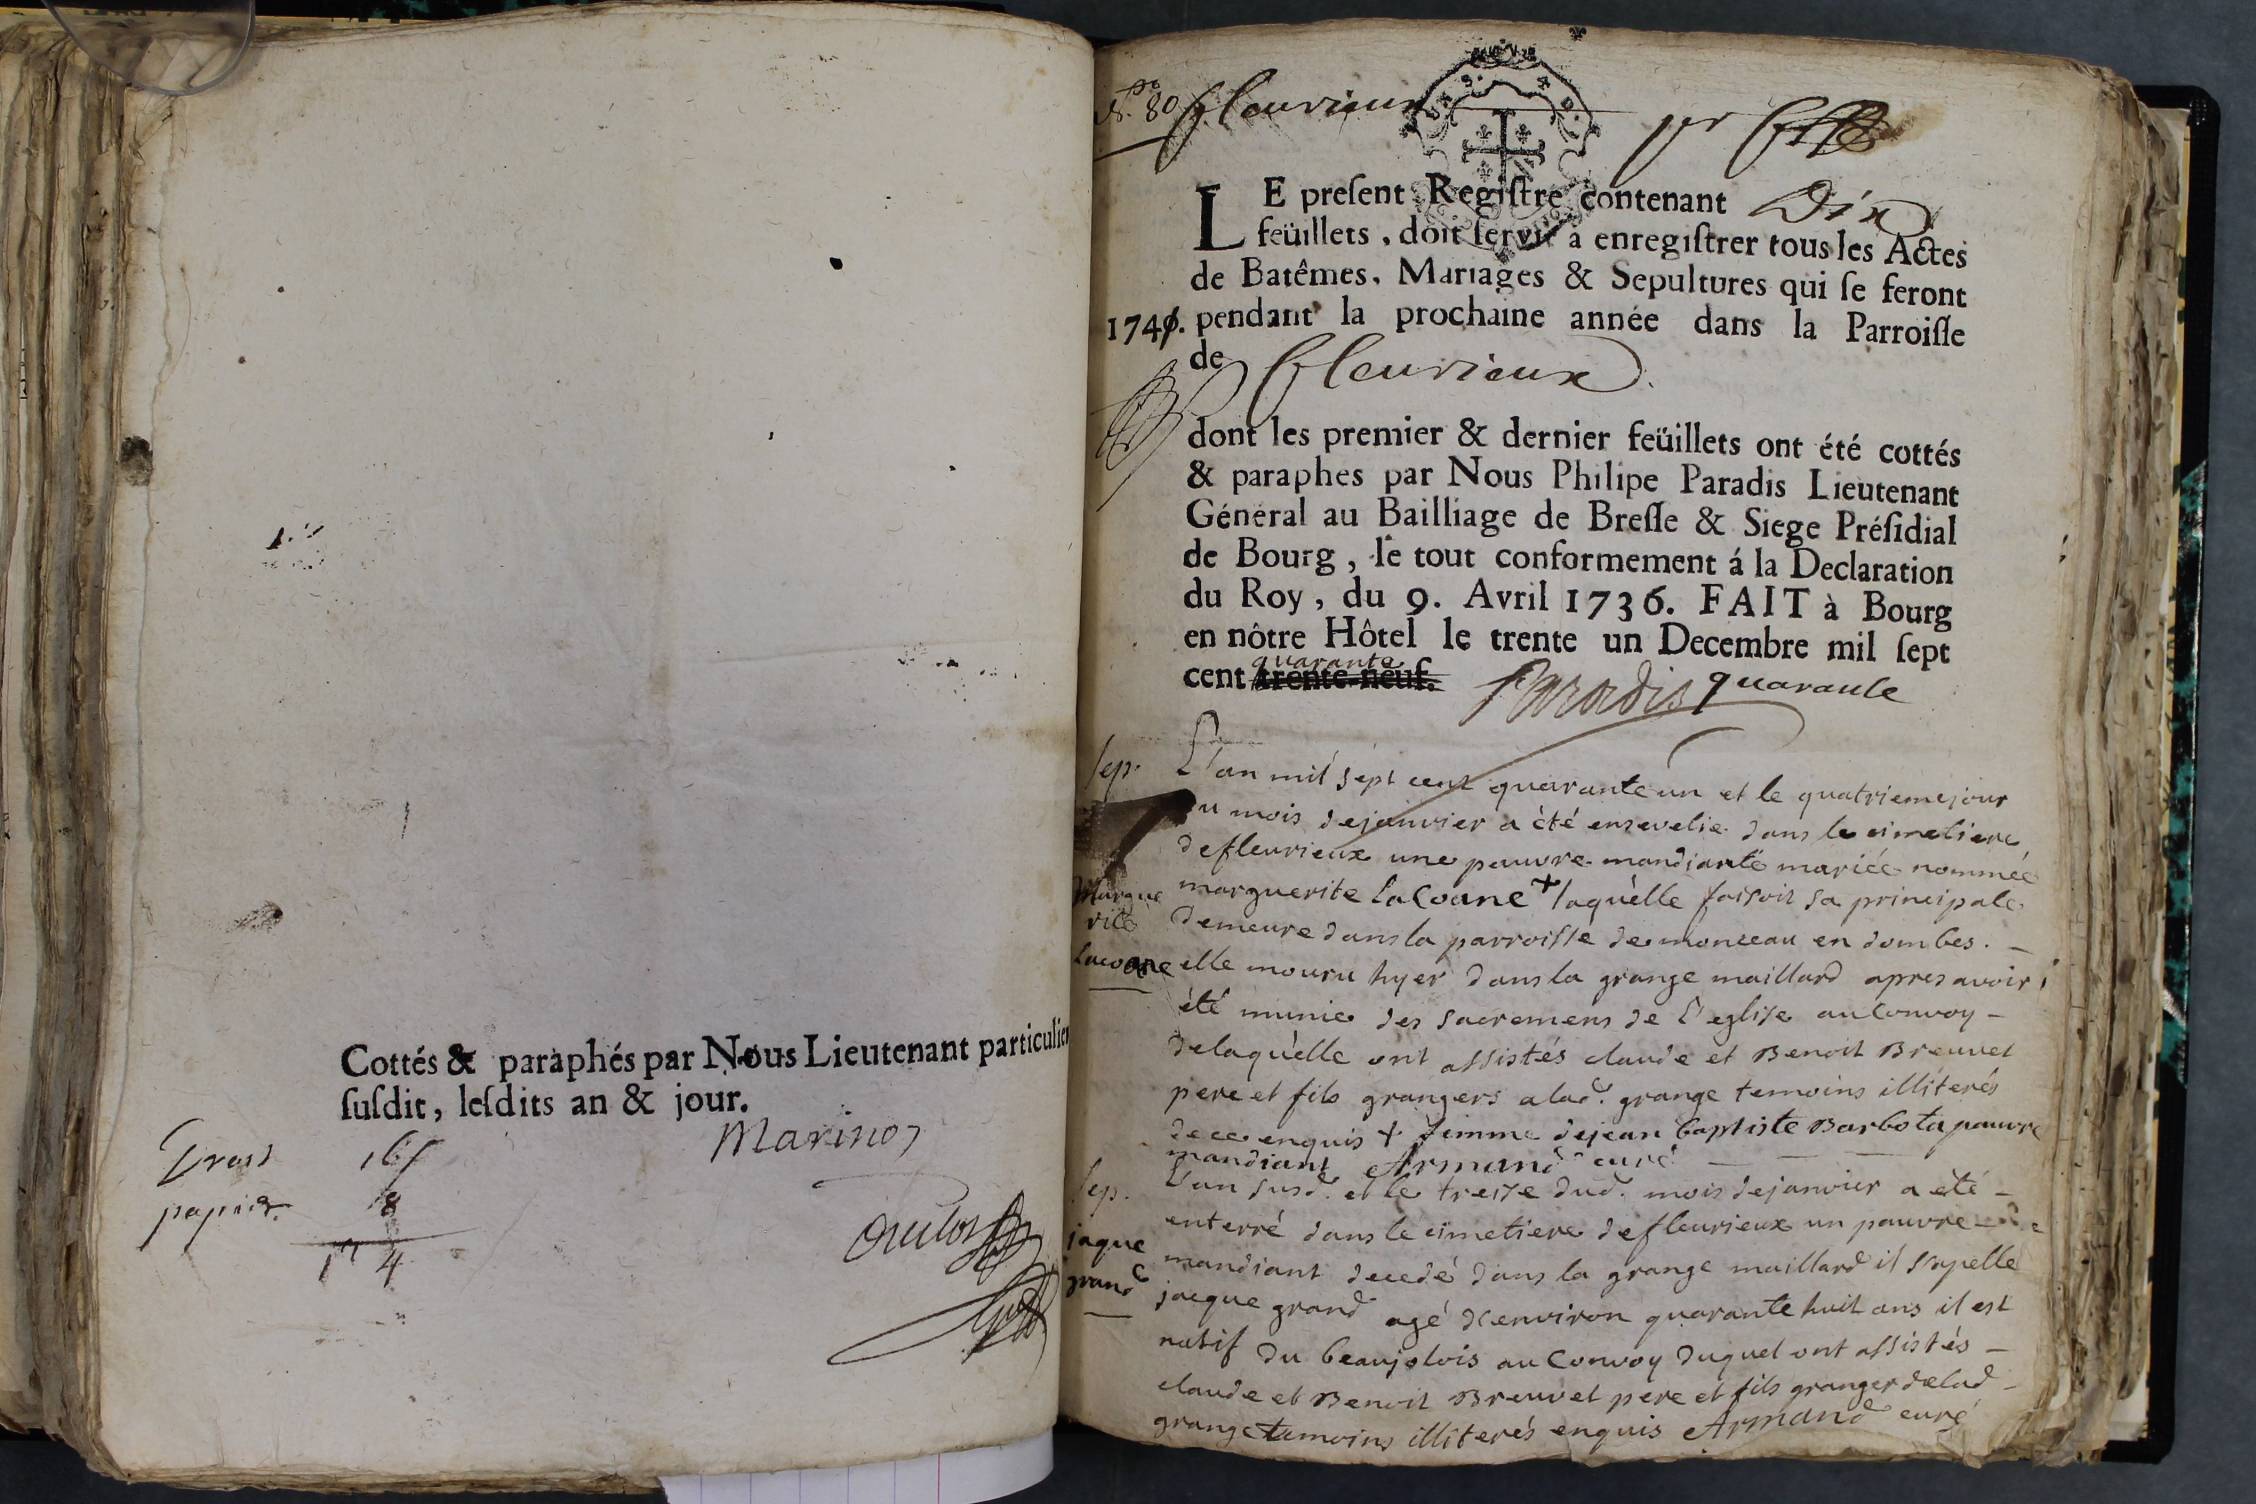 Cottés & paraphés par Nous Lieutenant particulier
susdit, lesdits an & jour.
Marinos
papier. 8
4
No. 80 fleurieux
LE present Registre contenant Dix
feüillets, doit servir à enregistrer tous les Actes
de Batêmes, Mariages & Sepultures qui se feront
1740. pendant la prochaine année dans la Parroisse
de fleurieux.
dont les premier & dernier feüillets ont été cottés
& paraphes par Nous Philipe Paradis Lieutenant
Général au Bailliage de Bresse & Siege Présidial
de Bourg, le tout conformement á la Declaration
du Roy, du 9. Avril 1736. FAIT à Bourg
en nôtre Hôtel le trente un Decembre mil sept
quarante
cent trente-neuf. Paradis quarante
Sep.
Margue
rite
Lacoane
L'an mil sept cent quarante un et le quatrieme jour
du mois de janvier a èté ensevelie dans le cimetiere
de fleurieux une pauvre mandiante mariée nommée
marguerite LaCoane + laquèlle faisoit sa principale
demeure dans la parroisse de monceau en dombes. –
elle mouru hyer dans la grange maillard apres avoir
été munie des sacremens de l'eglise au Convoy –
delaquèlle ont assistés claude et Benoit Breuvet
pere et fils grangers a lad. grange temoins illiterés
de ce enquis + femme de jean baptiste Barbota pauvre
mandiant Armand curé
Sep.
jaque
grand
L'an susd. et le treize dud. mois de janvier a eté –
enterré dans le cimetiere de fleurieux un pauvre
mandiant decedé dans la grange maillard il s'apelle
jacque grand agé d'environ quarante huit ans il est
natif du beaujolois au Convoy duquel ont assistés –
claude et Benoit Breuvet pere et fils granger de lad –
grange temoins illiterés enquis Armand curé